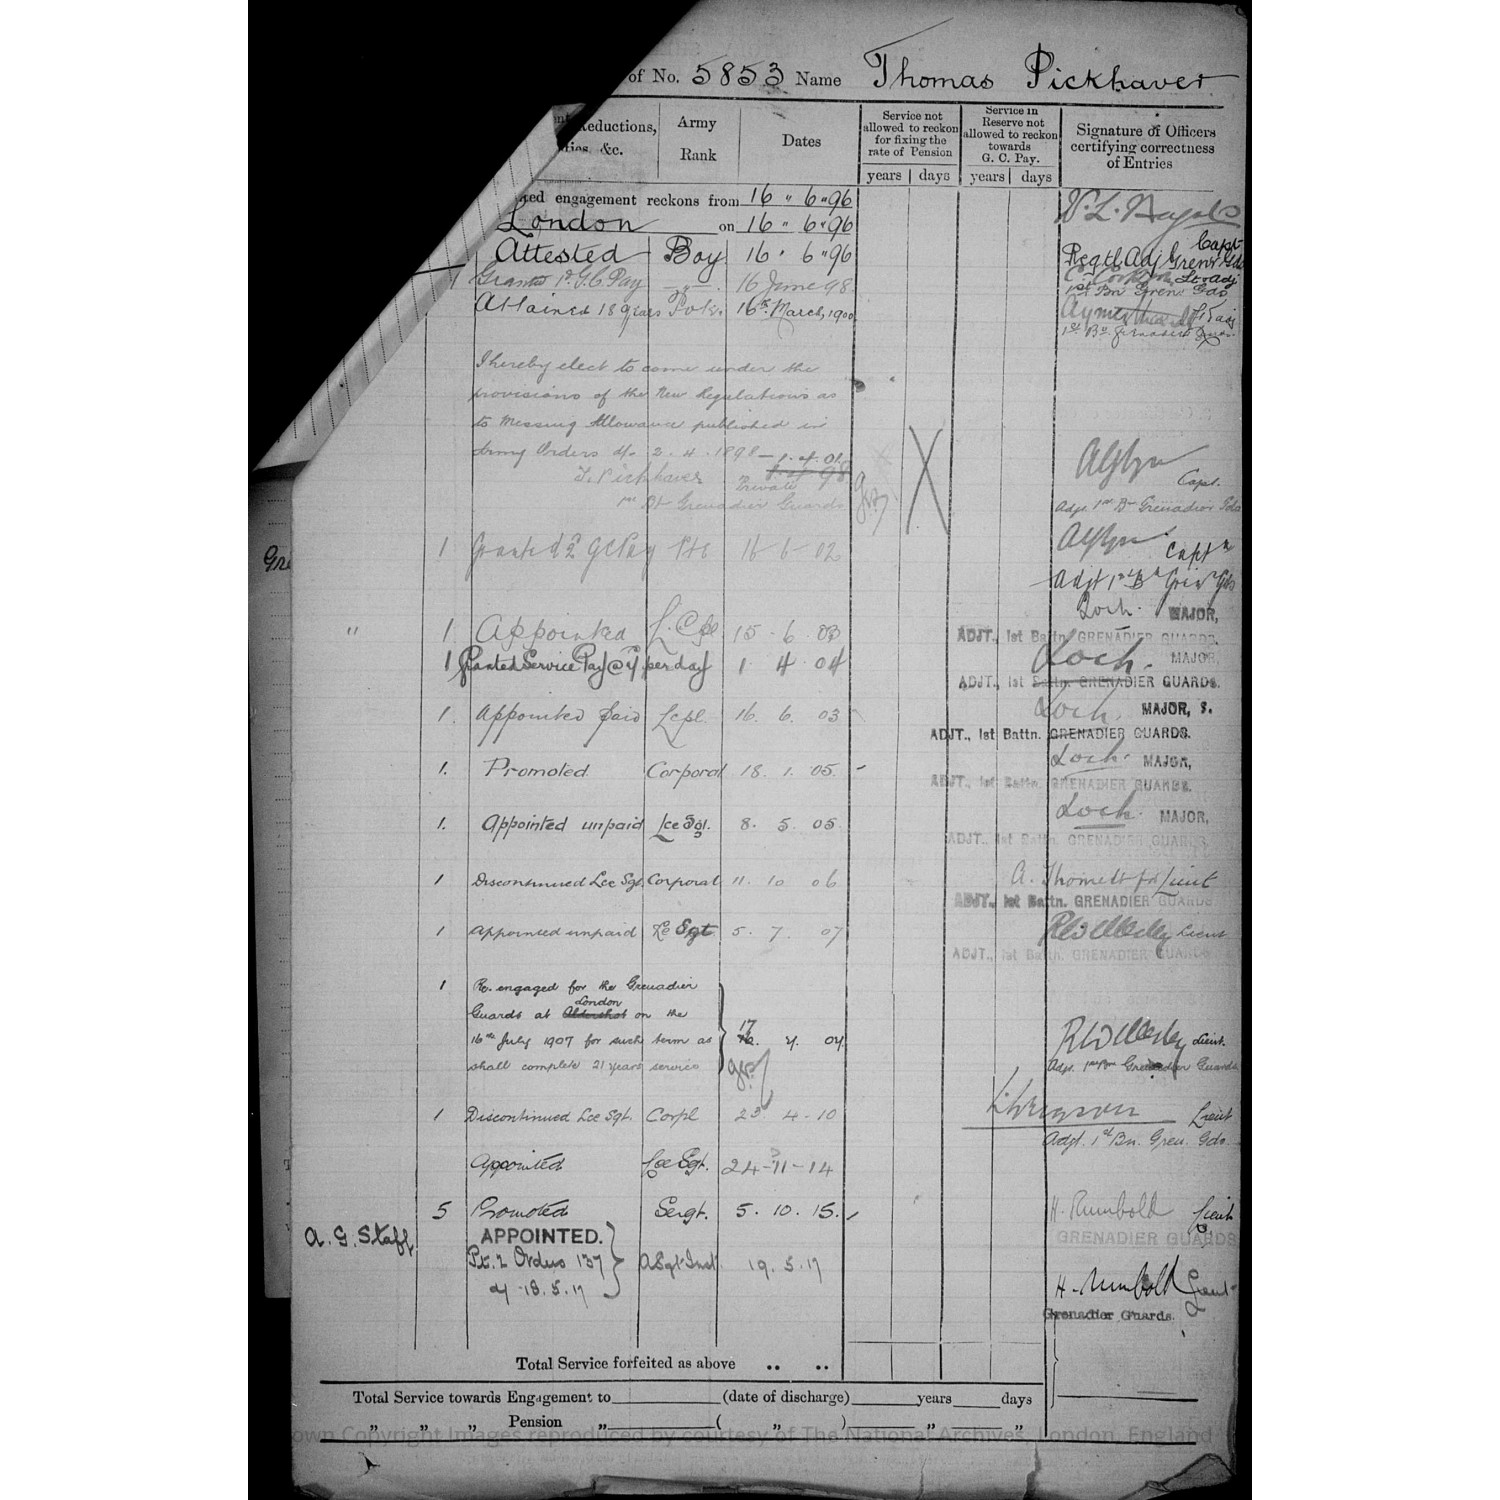 of No. 5853 Name Thomas Pickhaver
Reductions, &c.
Army Rank
Dates
Service not allowed to reckon for fixing the rate of Pension
Service in Reserve not allowed to reckon towards G. C. Pay.
Signature of Officers certifying correctness of Entries
years days years days
engagement reckons from 16 " 6 " 96
London on 16 " 6 " 96
Attested Boy 16 " 6 " 96 Capt
Regtl Adj Gren Gds
1 Granted 1st G.C. Pay — " — 16 June 98. Lt & Adj
1st Bn Gren Gds
Attained 18 years Pvte. 16th March, 1900
1st Bn Grenadier Gds
I hereby elect to come under the
provisions of the New Regulations as
to Messing Allowance published in
Army Orders d/- 2.4.1898 — 1.4.01
T. Pickhaver Private 98 Capt.
1st Bn Grenadier Guards Adjt 1st Bn Grenadier Gds
1 Granted 2nd GC Pay Pte 16-6-02 Captn
Adjt 1st Bn Gren Gds
" 1 Appointed L. Cpl 15 . 6 . 03 Loch. MAJOR,
ADJT., 1st Battn. GRENADIER GUARDS.
1 Granted Service Pay @ per day 1 . 4 . 04 Loch. MAJOR,
ADJT., 1st Battn. GRENADIER GUARDS.
1. Appointed paid Lcpl. 16. 6. 03 Loch. MAJOR,
ADJT., 1st Battn. GRENADIER GUARDS.
1. Promoted Corporal 18. 1. 05. Loch. MAJOR,
ADJT., 1st Battn. GRENADIER GUARDS.
1. Appointed unpaid Lce Sgt. 8. 5. 05 Loch. MAJOR,
ADJT., 1st Battn. GRENADIER GUARDS.
1 Discontinued Lce Sgt. Corporal 11. 10 06 Lieut
ADJT., 1st Battn. GRENADIER GUARDS
1 Appointed unpaid Lce Sgt 5. 7. 07 Lieut
ADJT., 1st Battn. GRENADIER GUARDS
1 Re-engaged for the Grenadier
Guards at Aldershot London on the
16th July 1907 for such term as 17 Lieut.
shall complete 21 years service Adjt. 1st Bn Grenadier Guards
1 Discontinued Lce Sgt. Corpl 23 4-10 Lieut
Adjt. 1st Bn. Gren. Gds.
Appointed Lce Sgt. 24-11-14
5 Promoted Sergt. 5. 10. 15. H. Rumbold Lieut
GRENADIER GUARDS
A. G. Staff APPOINTED.
Pt. 2 Orders 137 A Sgt Inst. 19. 5. 17
d/ 18. 5. 17 H. Rumbold Lieut
Grenadier Guards.
Total Service forfeited as above .. ..
Total Service towards Engagement to (date of discharge) years days
" " " Pension " ( " ) " "
own Copyright Images reproduced by courtesy of The National Archives, London, England